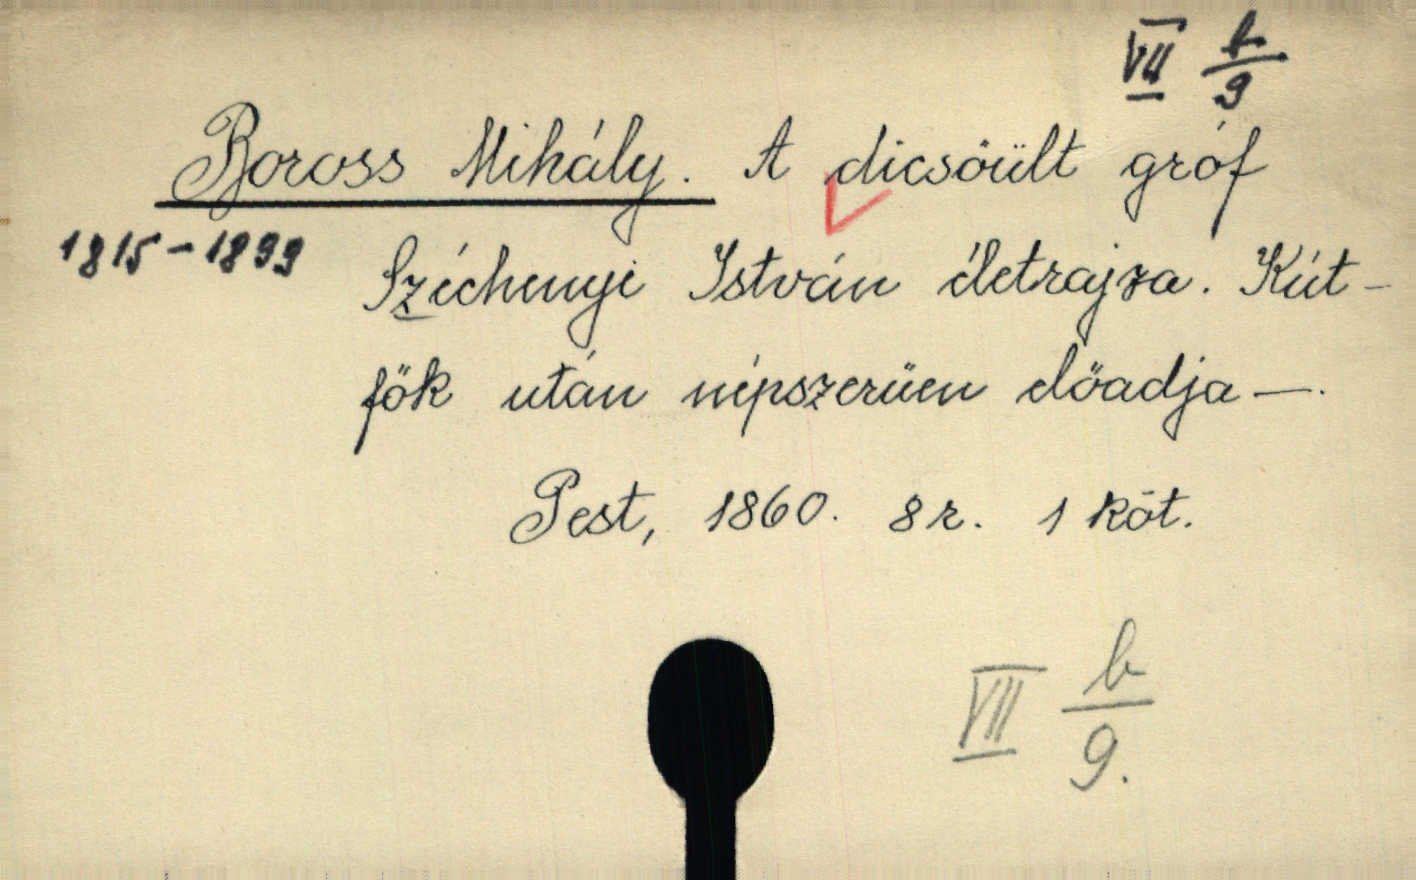 VII b/9
Boross Mihály. A dicsőült gróf
1815-1899
Széchenyi István életrajza. Kút-
fők után népszerűen előadja —.
Pest, 1860. 8r. 1 köt.
VII b/9.